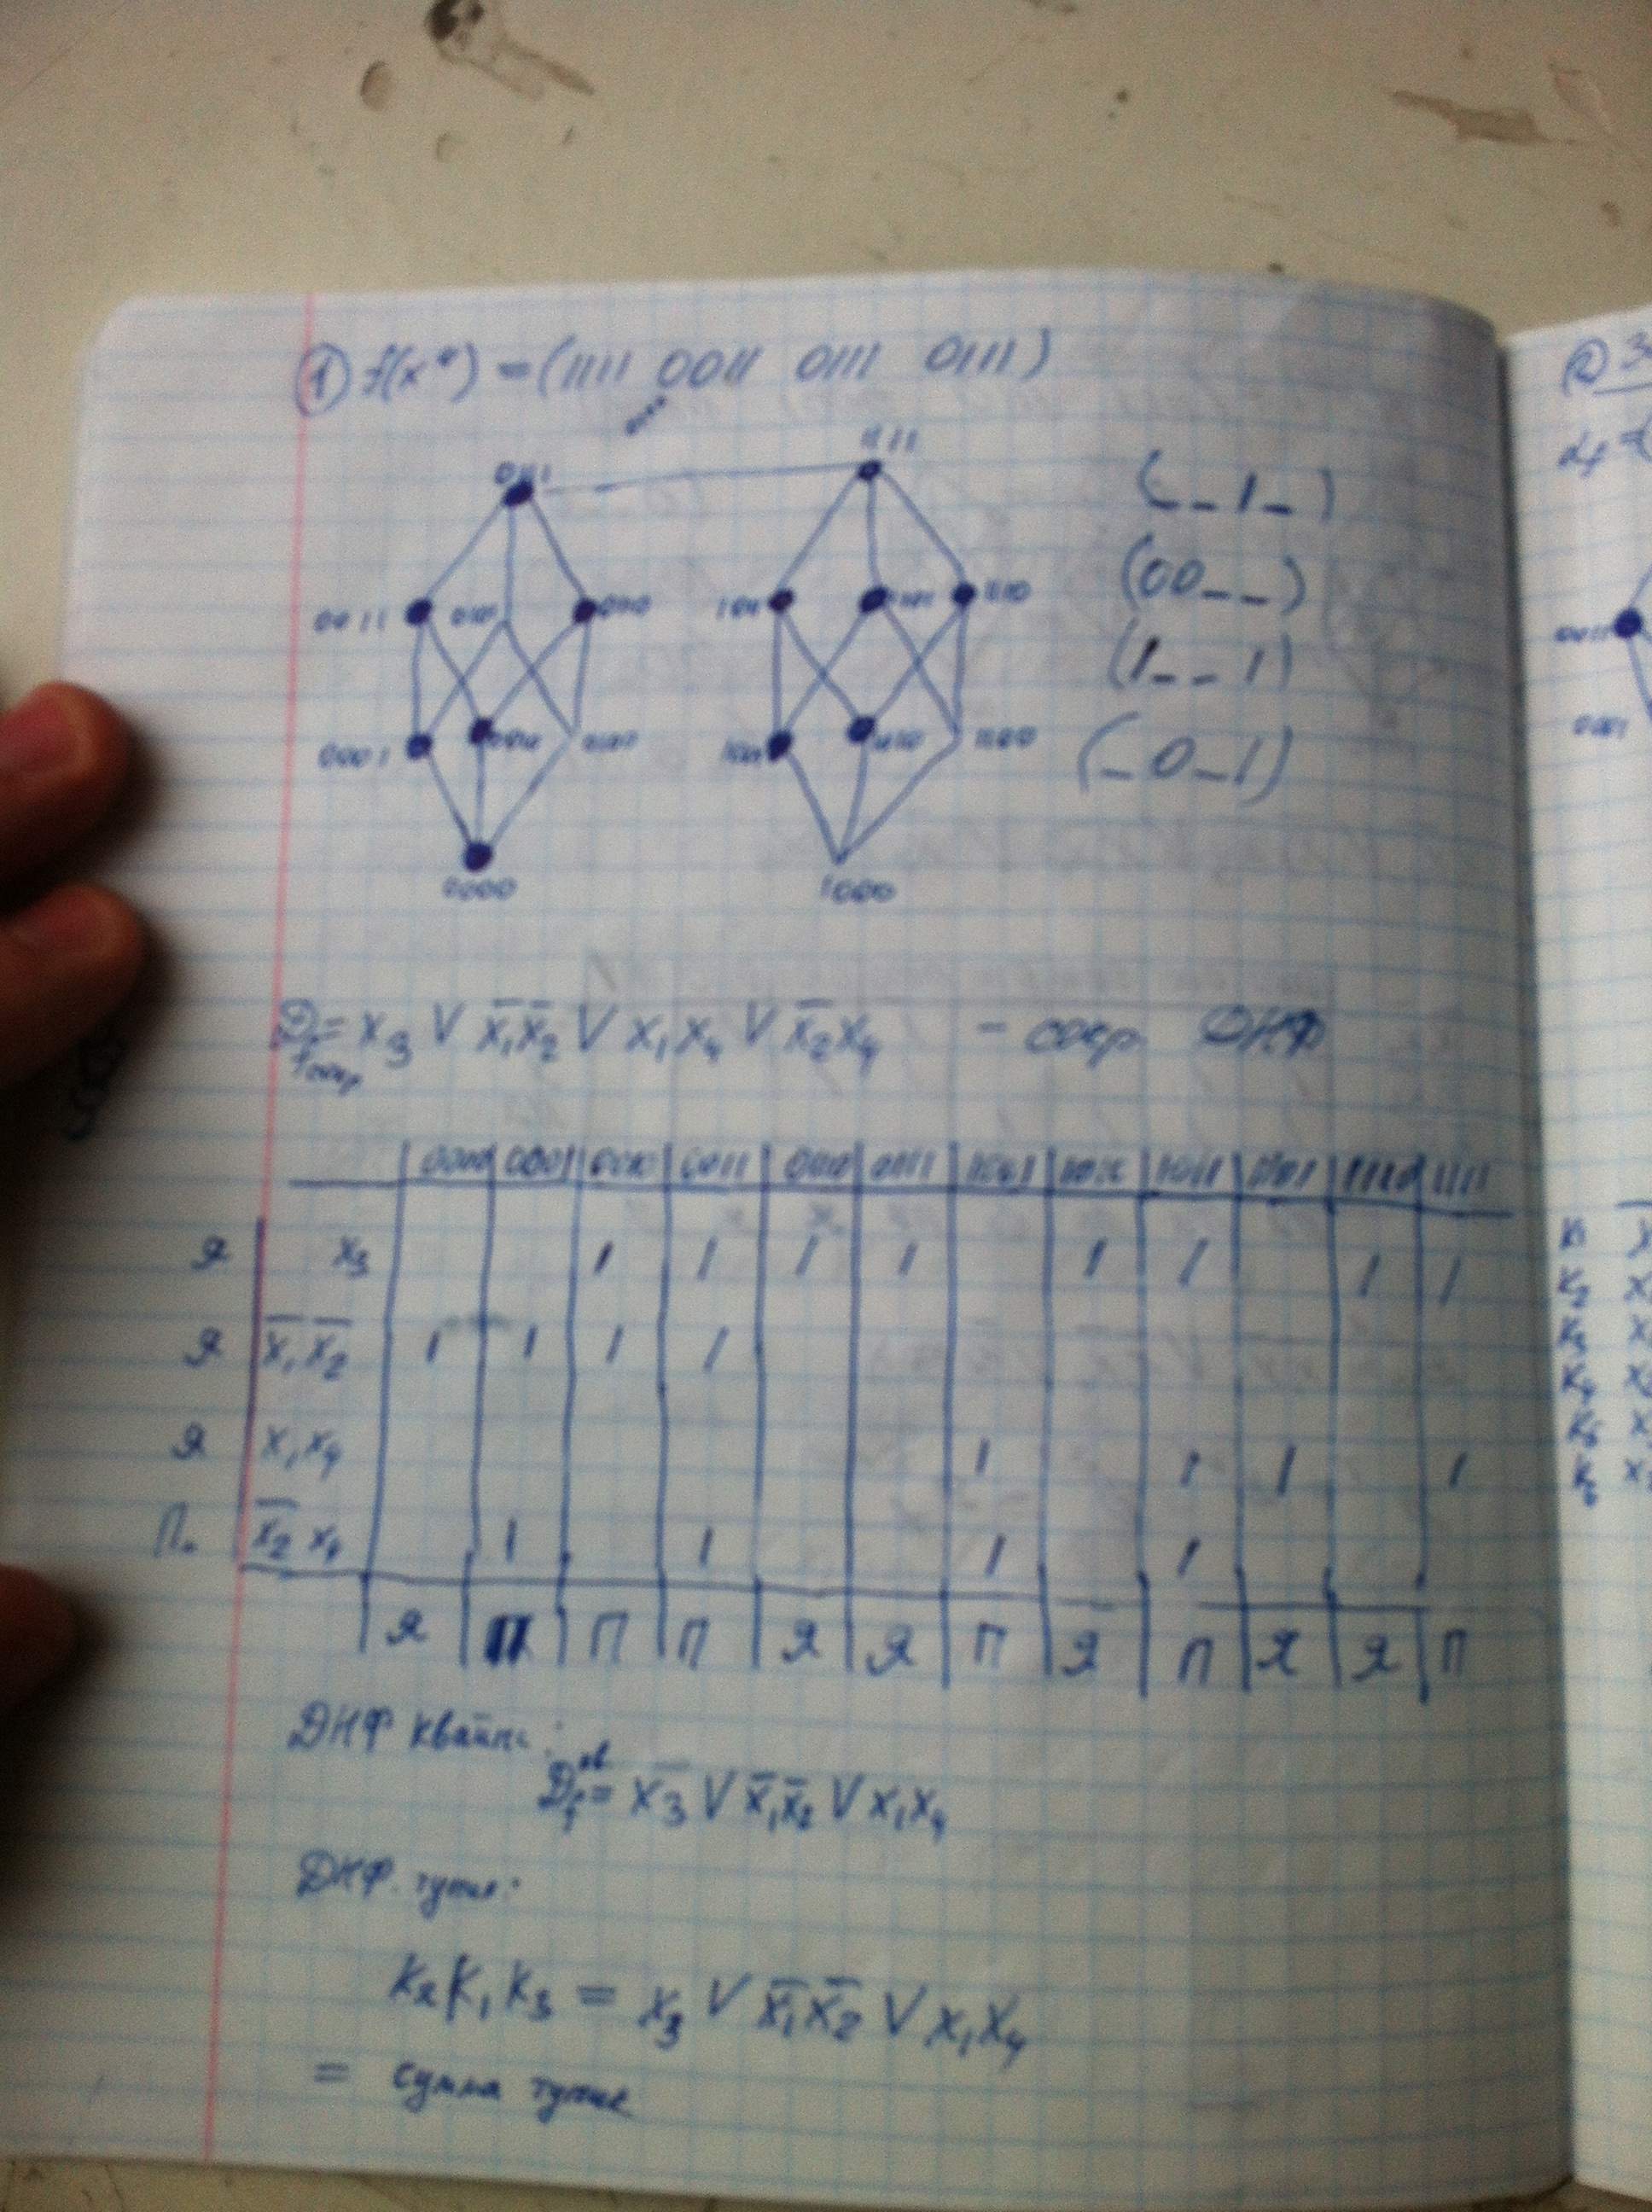 ① f(x⁴) = (1111 0011 0111 0111)
0111 1111
(_ _ 1 _)
(00 _ _)
(1 _ _ 1)
(_ 0 _ 1)
0011 010 0110 1011 1101 1110
0001 0010 0100 1001 1010 1100
0000 1000
D_f сокр = x₃ ∨ x̄₁x̄₂ ∨ x₁x₄ ∨ x̄₂x₄ – сокр ДНФ
0000 0001 0010 0011 0110 0111 1001 1010 1011 1101 1110 1111
Я x₃ 1 1 1 1 1 1 1 1
Я x̄₁x̄₂ 1 1 1 1
Я x₁x₄ 1 1 1 1
П. x̄₂x₄ 1 1 1 1
Я П П П Я Я П Я П Я Я П
ДНФ Квайна:
D_f^кв = x̄₃ ∨ x̄₁x̄₂ ∨ x₁x₄
ДНФ. тупик:
K₂K₁K₃ = x₃ ∨ x̄₁x̄₂ ∨ x₁x₄
= сумма тупик
② 3
0011
0001
K₂ x
K₃ x
K₄ x
K₅ x